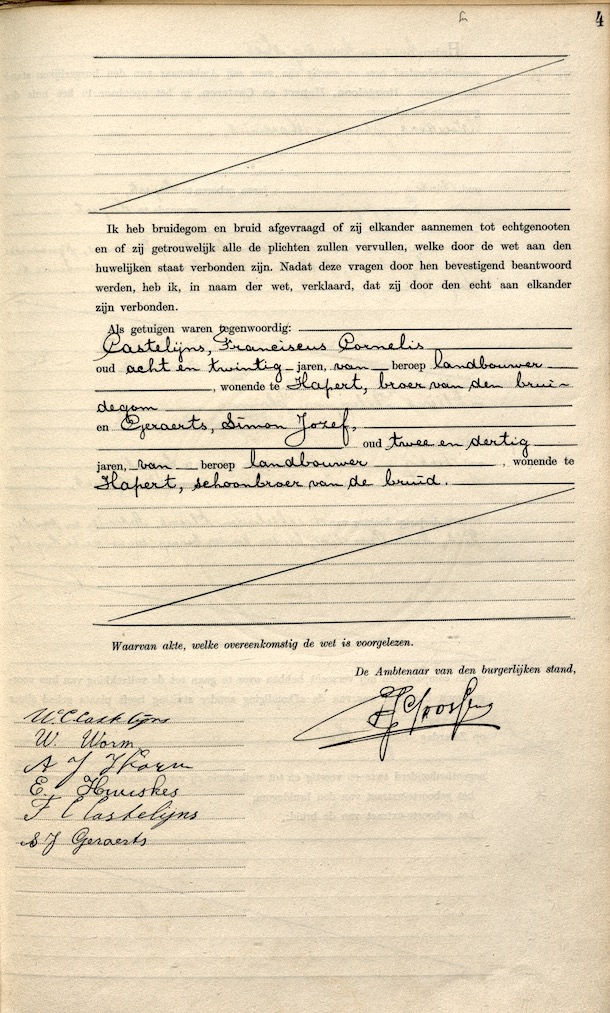 4
Ik heb bruidegom en bruid afgevraagd of zij elkander aannemen tot echtgenooten
en of zij getrouwelijk alle de plichten zullen vervullen, welke door de wet aan den
huwelijken staat verbonden zijn. Nadat deze vragen door hen bevestigend beantwoord
werden, heb ik, in naam der wet, verklaard, dat zij door den echt aan elkander
zijn verbonden.
Als getuigen waren tegenwoordig:
Castelijns, Franciscus Cornelis
oud acht en twintig jaren, van beroep landbouwer
, wonende te Hapert, broer van den brui-
degom
en Geraerts, Simon Jozef,
oud twee en dertig
jaren, van beroep landbouwer , wonende te
Hapert, schoonbroer van de bruid.
Waarvan akte, welke overeenkomstig de wet is voorgelezen.
De Ambtenaar van den burgerlijken stand,
W Castelijns
W. Worm
A J Worm
E. Huijskes
F C Castelijns
S J Geraerts